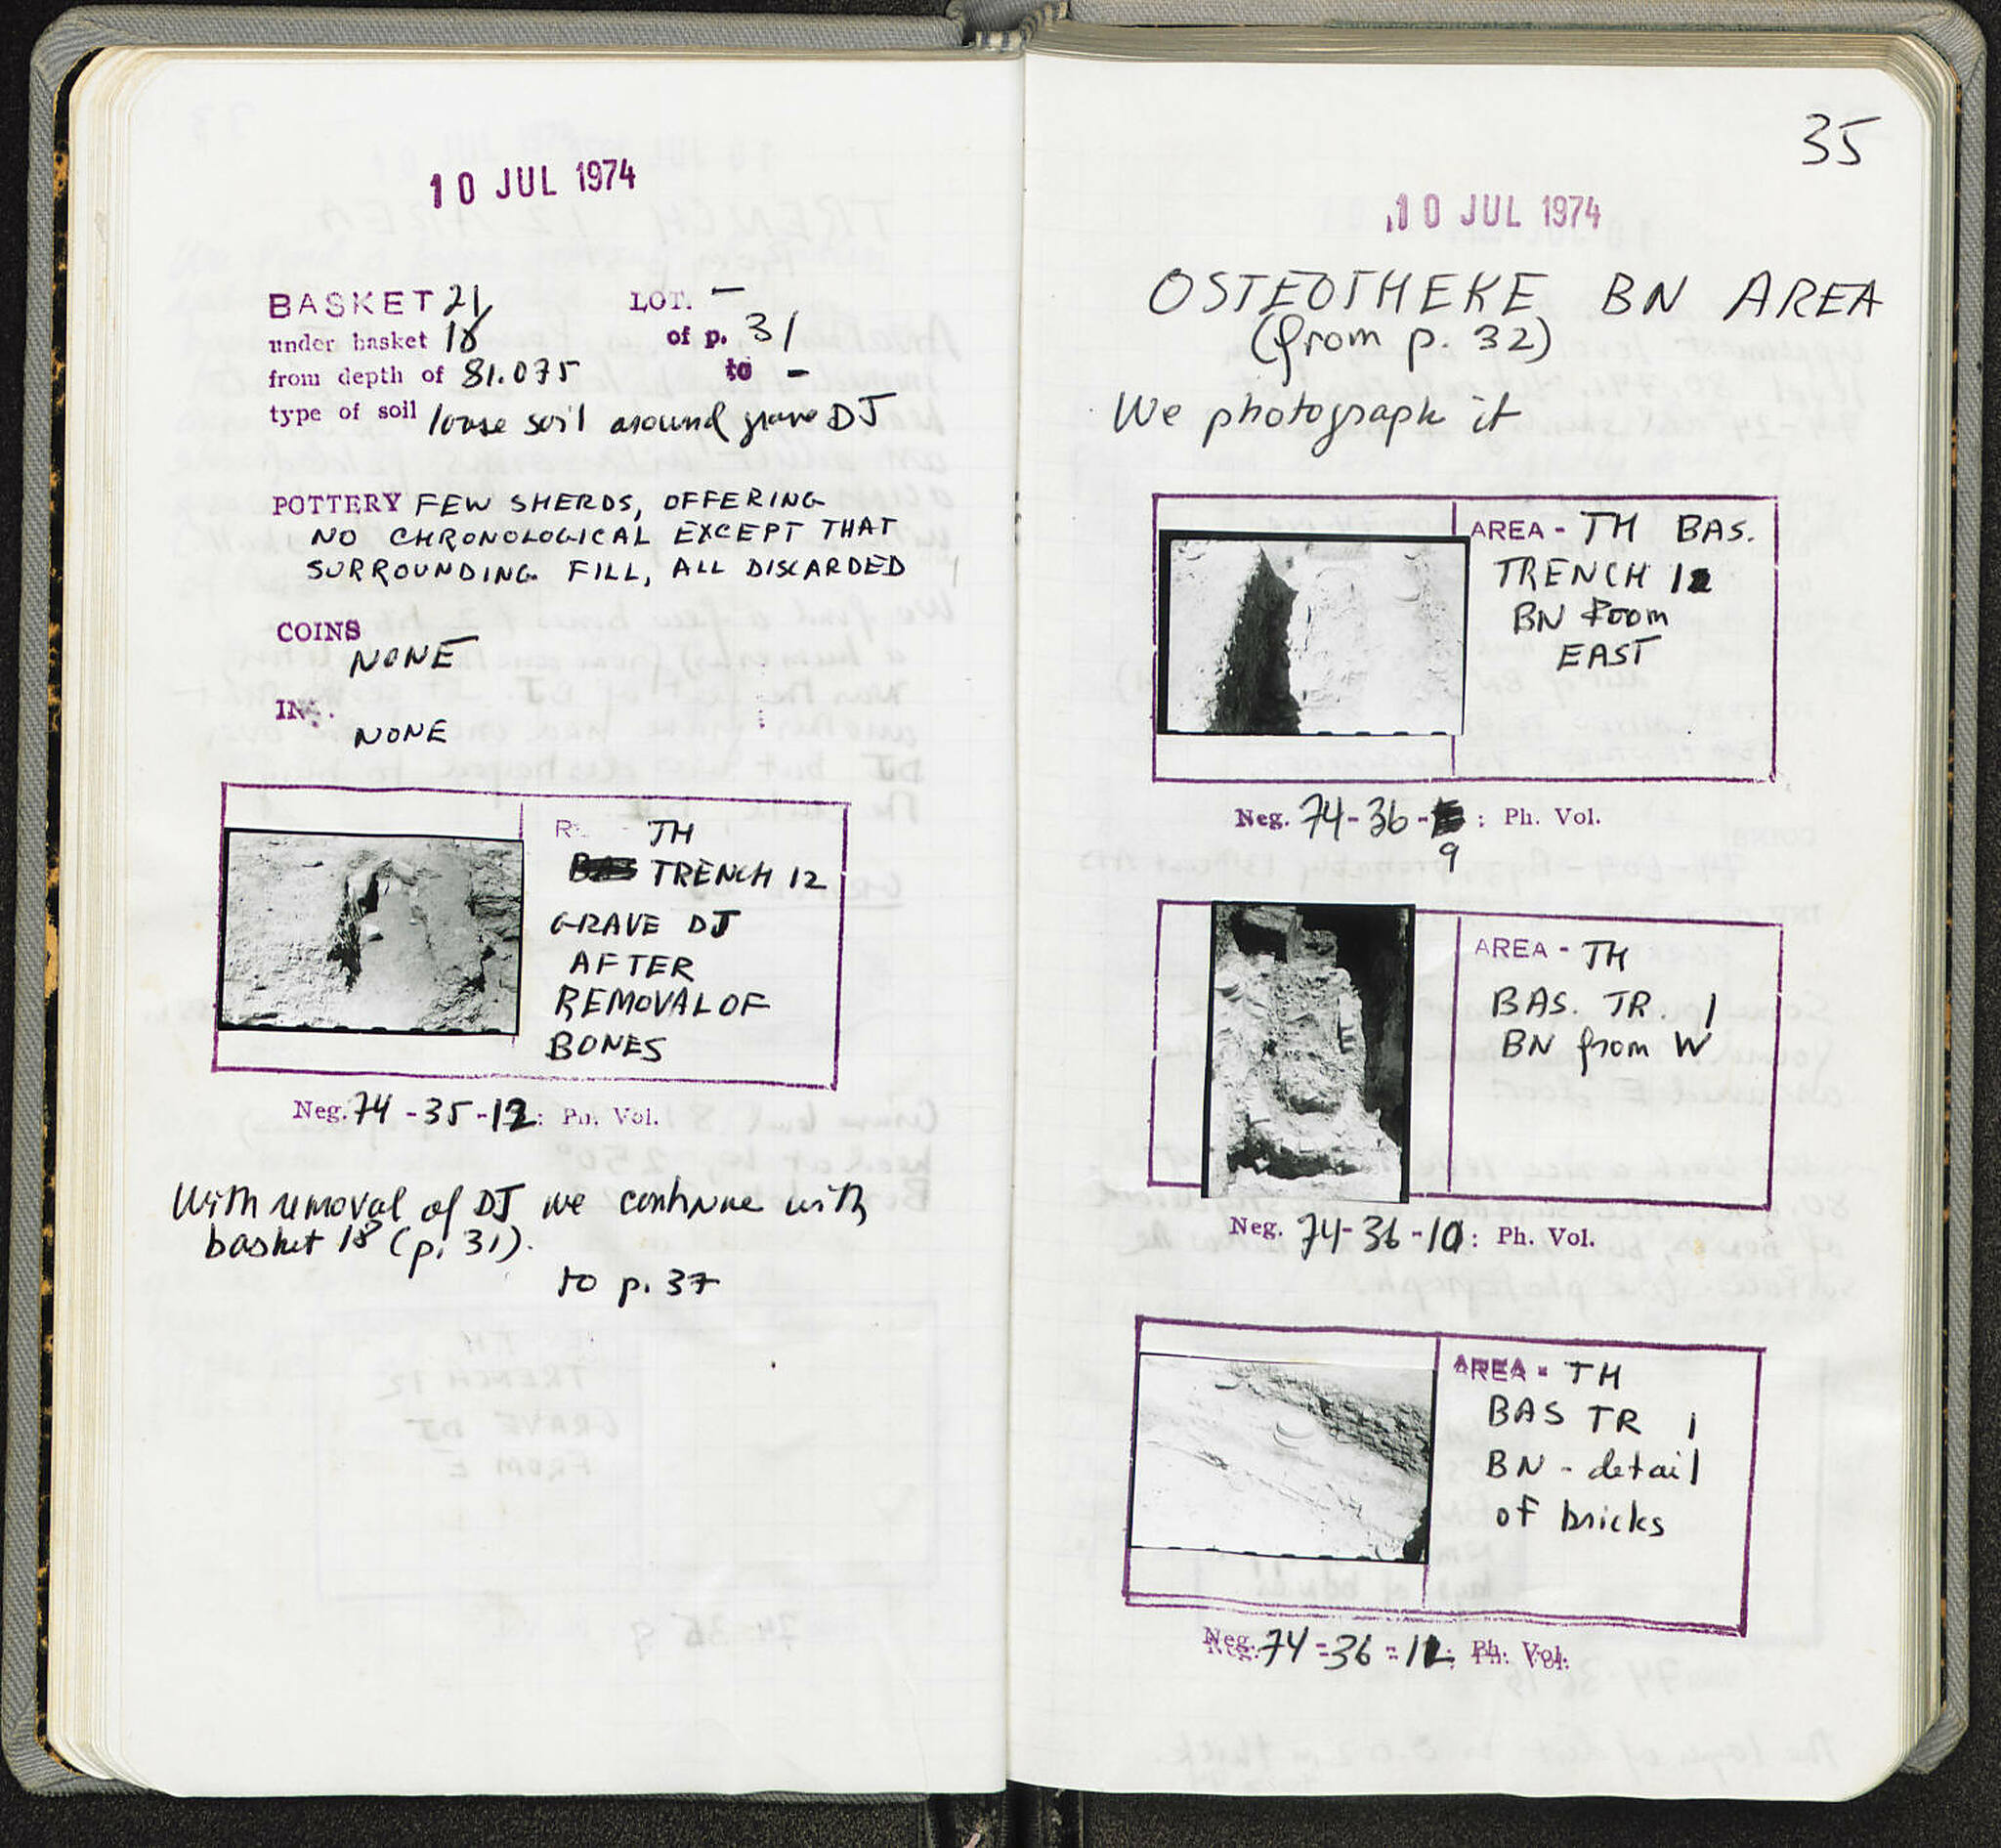 10 JUL 1974
BASKET 21 LOT. -
under basket 18 of p. 31
from depth of 81.075 to -
type of soil loose soil around grave DJ
POTTERY FEW SHERDS, OFFERING
NO CHRONOLOGICAL EXCEPT THAT
SURROUNDING FILL, ALL DISCARDED
COINS
NONE
IN .
NONE
TH
TRENCH 12
GRAVE DJ
AFTER
REMOVAL OF
BONES
Neg. 74-35-12: Ph. Vol.
With removal of DJ we continue with
basket 18 (p. 31).
to p. 37
35
10 JUL 1974
OSTEOTHEKE BN AREA
(from p. 32)
We photograph it
AREA - TH BAS.
TRENCH 12
BN from
EAST
Neg. 74-36- : Ph. Vol.
9
AREA - TH
BAS. TR. 1
BN from W
Neg. 74-36-10: Ph. Vol.
AREA - TH
BAS TR 1
BN - detail
of bricks
Neg. 74-36- : Ph. Vol.